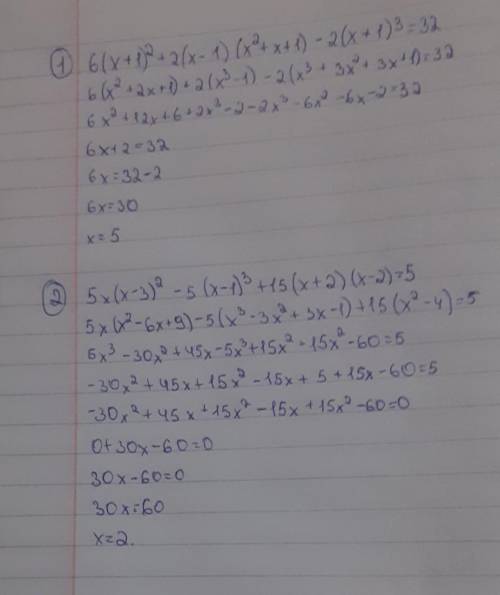 ① 6(x+1)² + 2(x-1)(x²+x+1) - 2(x+1)³ = 32
6(x²+2x+1) + 2(x³-1) - 2(x³+3x²+3x+1) = 32
6x²+12x+6+2x³-2-2x³-6x²-6x-2=32
6x+2=32
6x=32-2
6x=30
x=5
② 5x(x-3)² - 5(x-1)³ + 15(x+2)(x-2)=5
5x(x²-6x+9) - 5(x³-3x²+3x-1) + 15(x²-4)=5
5x³-30x²+45x-5x³+15x²-15x²-60=5
-30x²+45x+15x²-15x+5+15x-60=5
-30x²+45x+15x²-15x+15x²-60=0
0+30x-60=0
30x-60=0
30x=60
x=2.